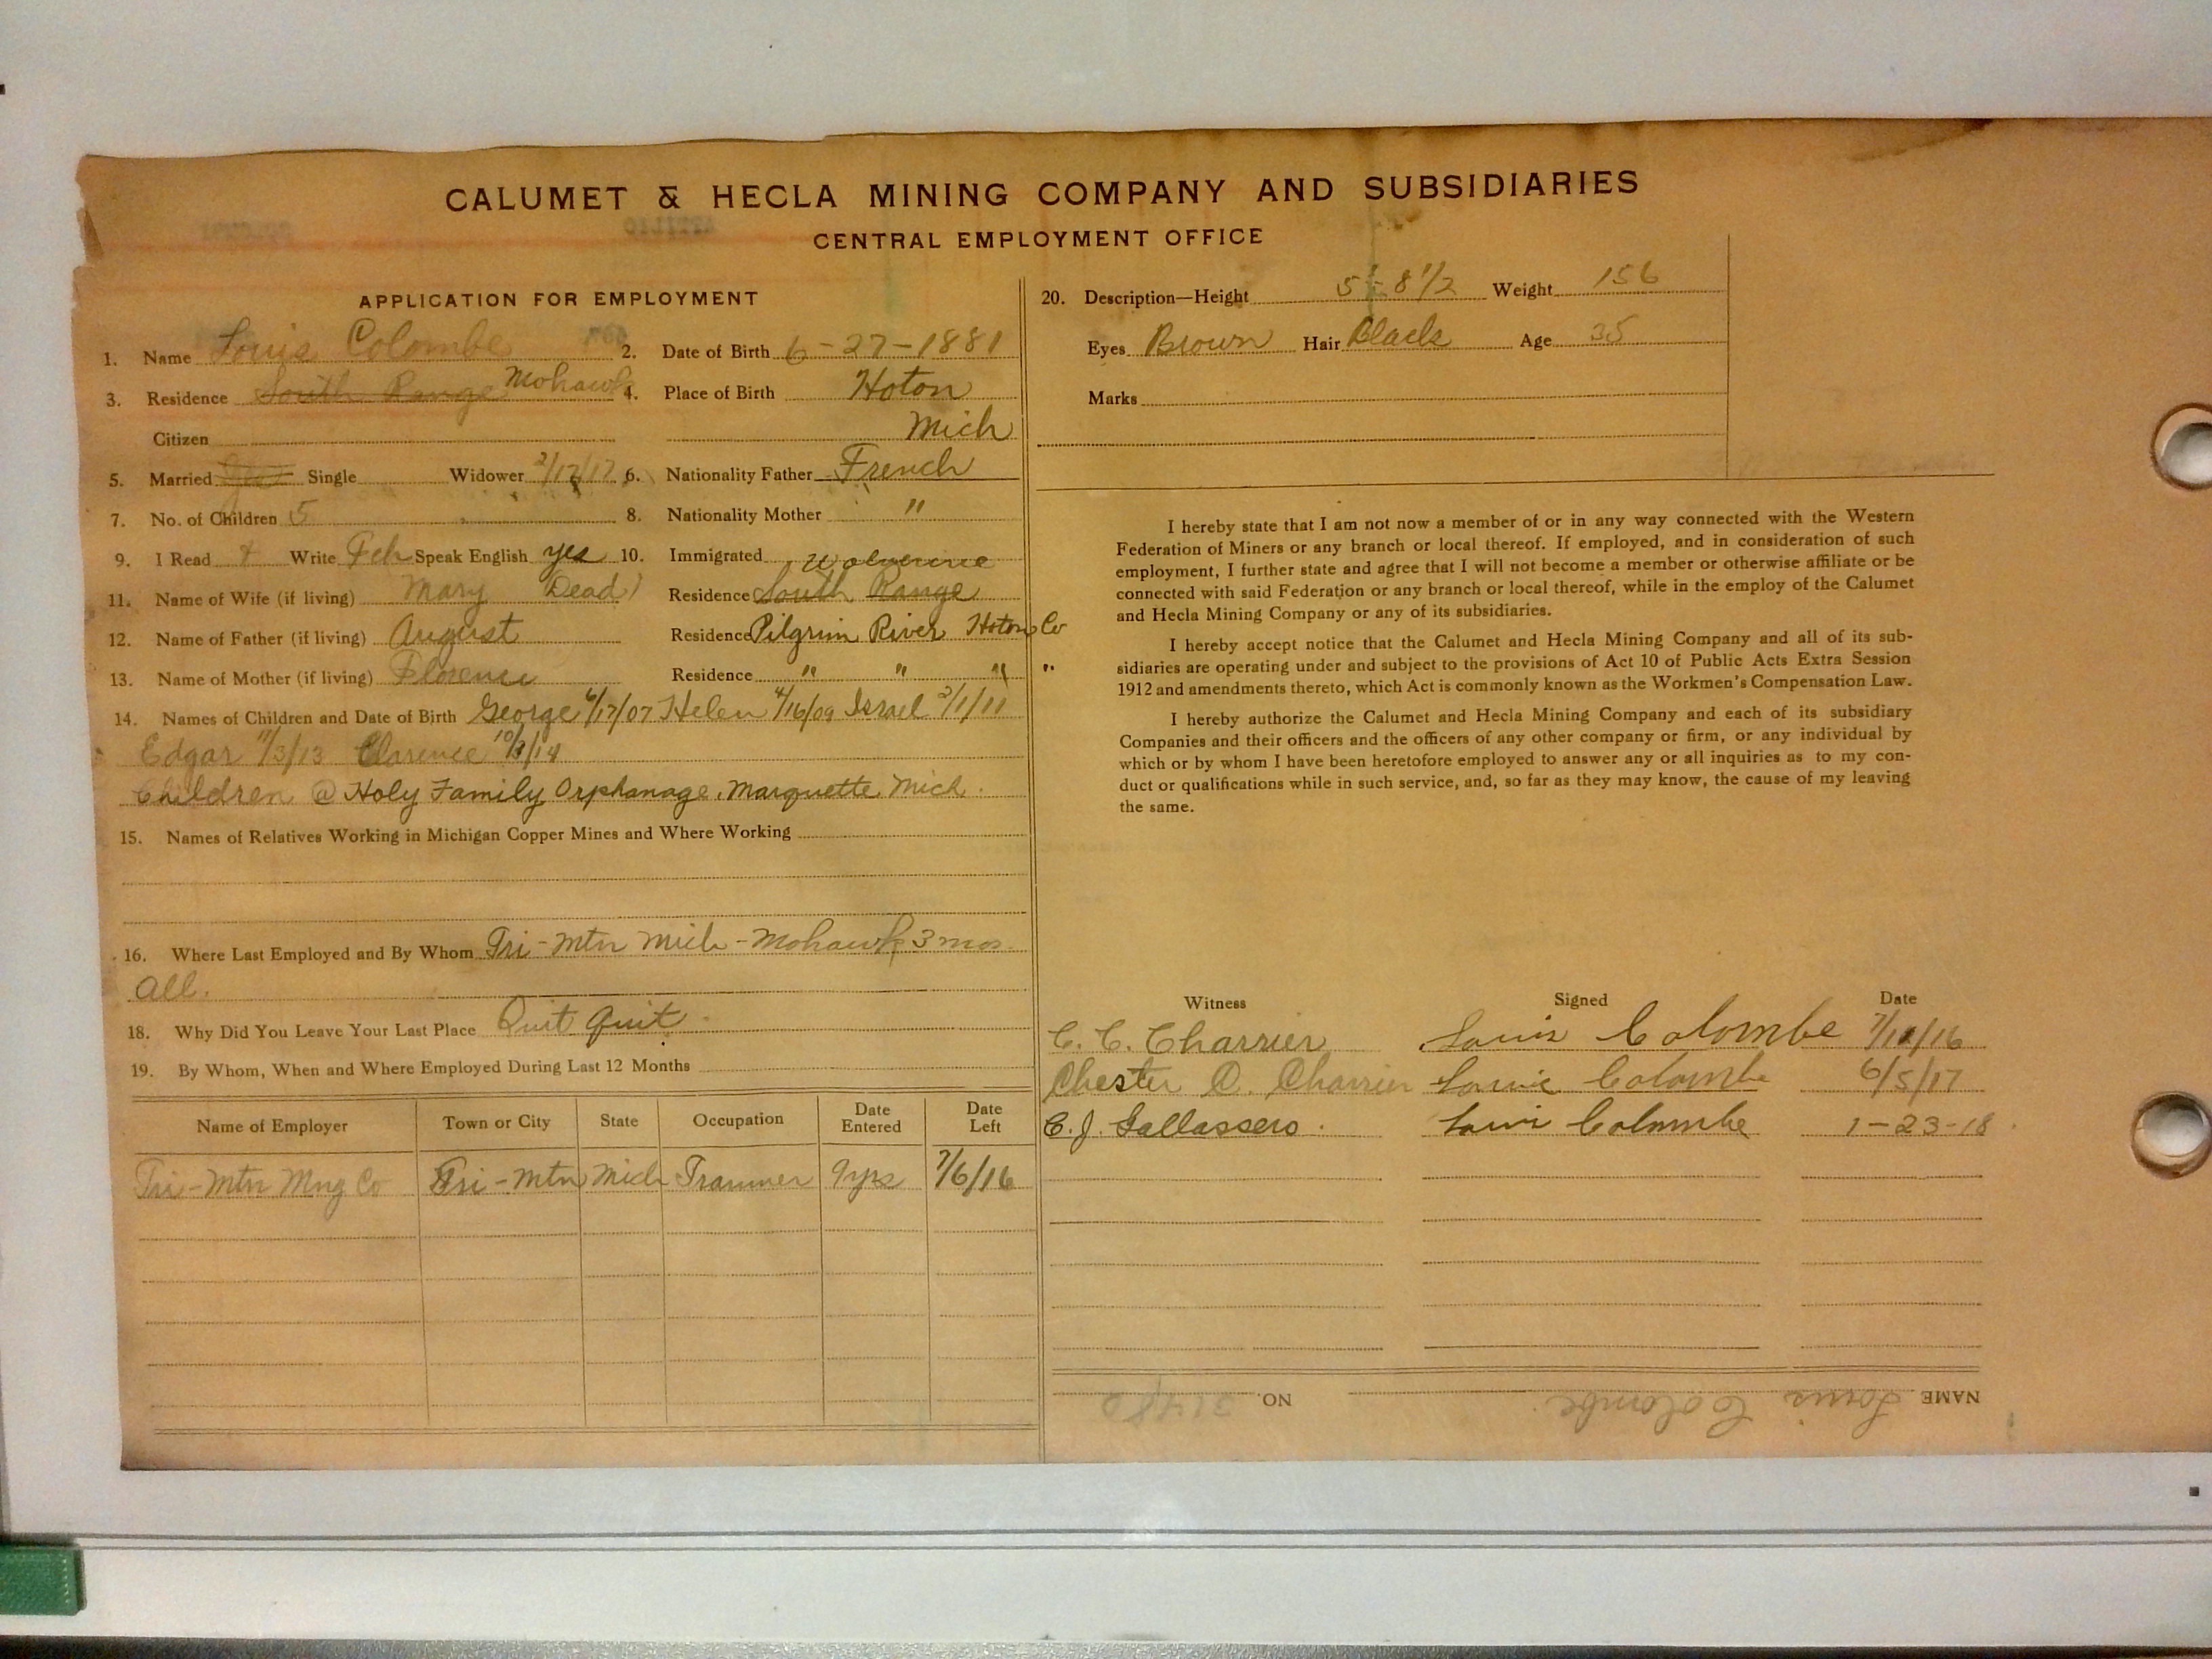 CALUMET & HECLA MINING COMPANY AND SUBSIDIARIES
CENTRAL EMPLOYMENT OFFICE
APPLICATION FOR EMPLOYMENT
1. Name Louis Colombe 2. Date of Birth 6-27-1881
3. Residence South Range Mohawk 4. Place of Birth Hoton
Citizen Mich
5. Married Yes Single Widower 2/17/17 6. Nationality Father French
7. No. of Children 5 8. Nationality Mother "
9. I Read + Write Fch Speak English yes 10. Immigrated Wolverine
11. Name of Wife (if living) Mary Dead) Residence South Range
12. Name of Father (if living) August Residence Pilgrim River Hoton Co
13. Name of Mother (if living) Florence Residence " " " "
14. Names of Children and Date of Birth George 6/17/07 Helen 4/16/09 Israel 2/1/11
Edgar 11/3/13 Clarence 10/3/14
Children @ Holy Family Orphanage, Marquette Mich.
15. Names of Relatives Working in Michigan Copper Mines and Where Working
16. Where Last Employed and By Whom Tri-Mtn Mich - Mohawk 3 mos.
All.
18. Why Did You Leave Your Last Place Quit Quit
19. By Whom, When and Where Employed During Last 12 Months
Name of Employer Town or City State Occupation Date Entered Date Left
Tri-Mtn Mng Co Tri-Mtn Mich Trammer 9yrs 7/6/16
20. Description—Height 5'-8 1/2 Weight 156
Eyes Brown Hair Black Age 35
Marks
I hereby state that I am not now a member of or in any way connected with the Western
Federation of Miners or any branch or local thereof. If employed, and in consideration of such
employment, I further state and agree that I will not become a member or otherwise affiliate or be
connected with said Federation or any branch or local thereof, while in the employ of the Calumet
and Hecla Mining Company or any of its subsidiaries.
I hereby accept notice that the Calumet and Hecla Mining Company and all of its sub-
sidiaries are operating under and subject to the provisions of Act 10 of Public Acts Extra Session
1912 and amendments thereto, which Act is commonly known as the Workmen's Compensation Law.
I hereby authorize the Calumet and Hecla Mining Company and each of its subsidiary
Companies and their officers and the officers of any other company or firm, or any individual by
which or by whom I have been heretofore employed to answer any or all inquiries as to my con-
duct or qualifications while in such service, and, so far as they may know, the cause of my leaving
the same.
Witness Signed Date
C. C. Charrier Louis Colombe 7/11/16
Chester C. Charrier Louis Colombe 6/5/17
C. J. Gallassero. Louis Colombe 1-23-18
NAME Louis Colombe. NO.